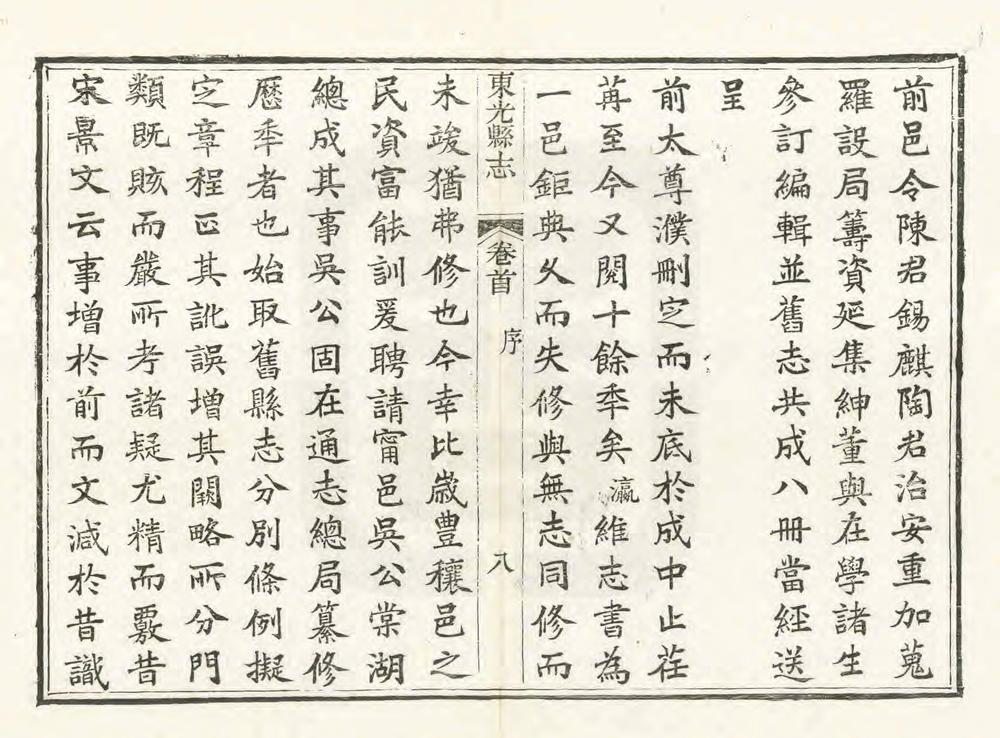 前邑令陳君錫麒陶君治安重加蒐
羅設局籌資延集紳董與在學諸生
參訂編輯並舊志共成八冊當經送
呈
前太尊濮刪定而未底於成中止荏
苒至今又閱十餘季矣瀛維志書為
一邑鉅典乆而失修與無志同修而
東光縣志 卷首 序 八
未竣猶弗修也今幸比歲豊穰邑之
民資富能訓爰聘請甯邑吳公棠湖
總成其事吳公固在通志總局纂修
歷季者也始取舊縣志分別條例擬
定章程正其訛誤增其闕略所分門
類既賅而嚴所考諸疑尤精而覈昔
宋景文云事增於前而文減於昔識